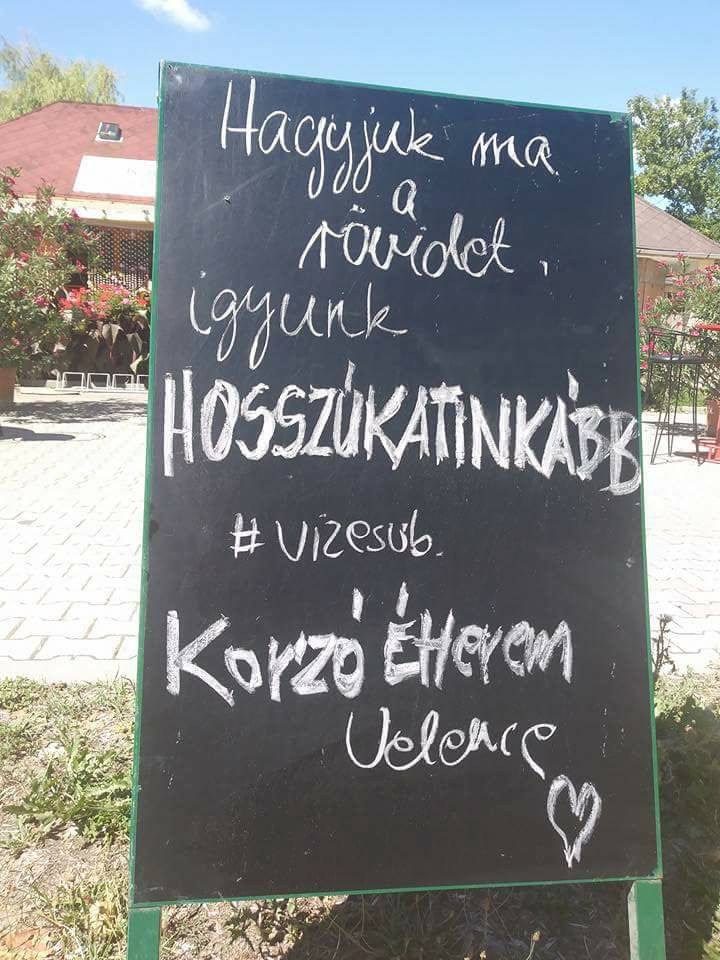 Hagyjuk ma
a
rövidet,
igyunk
HOSSZÚKATINKÁBB
#vizesvb.
Korzó Étterem
Velence